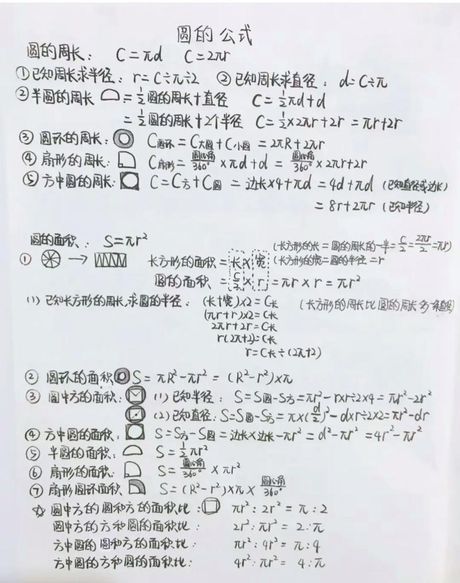 圆的公式
圆的周长： C=πd C=2πr
①已知周长求半径：r=C÷π÷2 ②已知周长求直径：d=C÷π
②半圆的周长 =½圆的周长+直径 C=½πd+d
=½圆的周长+2个半径 C=½×2πr+2r=πr+2r
③圆环的周长： C圆环=C大圆+C小圆=2πR+2πr
④扇形的周长： C扇形=圆心角/360°×πd+d=圆心角/360°×2πr+2r
⑤方中圆的周长： C=C方+C圆=边长×4+πd=4d+πd (已知直径或边长)
=8r+2πr (已知半径)
圆的面积： S=πr²
(长方形的长=圆的周长的一半=C/2=2πr/2=πr)
① → 长方形的面积=长×宽 (长方形的宽=圆的半径=r
圆的面积=C/2×r=πr×r=πr²
(1)已知长方形的周长,求圆的半径：(长+宽)×2=C长 (长方形的周长比圆的周长多
(πr+r)×2=C长
2πr+2r=C长
r(2π+2)=C长
r=C长÷(2π+2)
②圆环的面积 S=πR²-πr²=(R²-r²)×π
③圆中方的面积： (1)已知半径：S=S圆-S方=πr²-r×r÷2×4=πr²-2r²
(2)已知直径：S=S圆-S方=π×(d/2)²-d×r÷2×2=πr²-dr
④方中圆的面积： S=S方-S圆=边长×边长-πr²=d²-πr²=4r²-πr²
⑤半圆的面积： S=½πr²
⑥扇形的面积： S=圆心角/360°×πr²
⑦扇形圆环面积 S=(R²-r²)×π×圆心角/360°
☆圆中方的圆和方的面积比： πr²:2r²=π:2
圆中方的方和圆的面积比： 2r²:πr²=2:π
方中圆的圆和方的面积比： πr²:4r²=π:4
方中圆的方和圆的面积比： 4r²:πr²=4:π